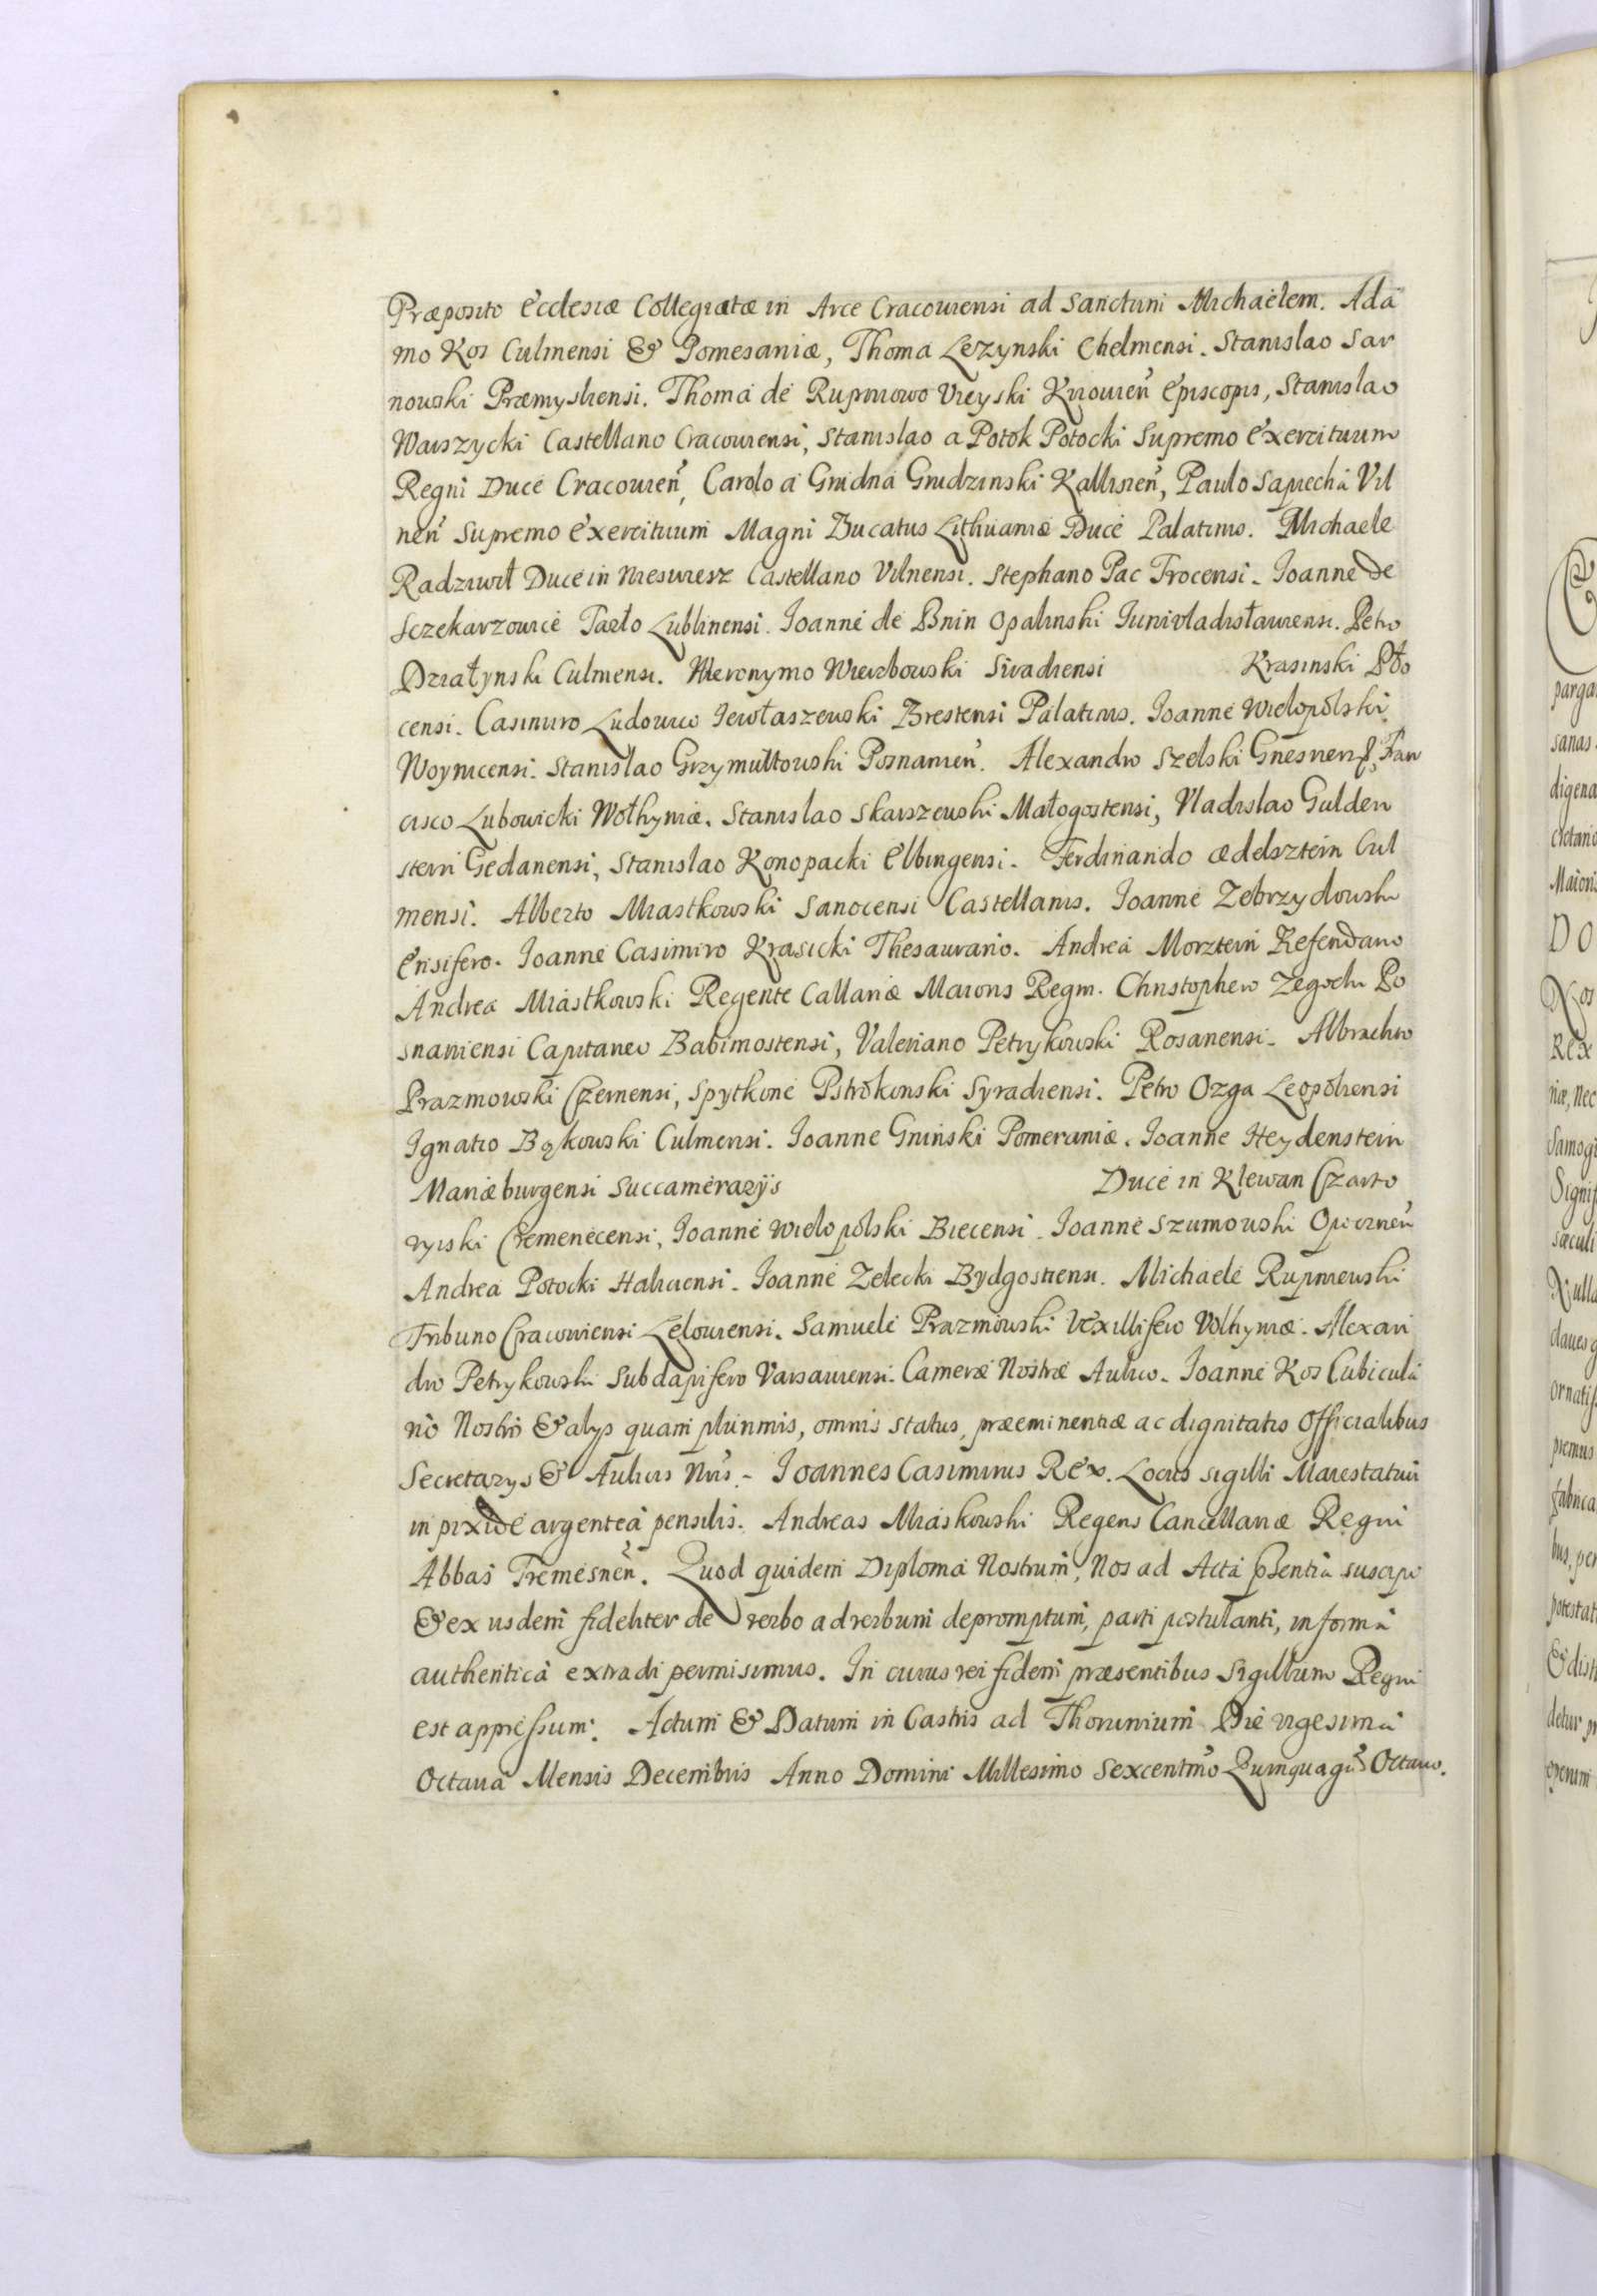 Præposito Ecclesiæ Collegiatæ in Arce Cracouiensi ad Sanctum Michaëlem. Ada
mo Kos Culmensi & Pomesaniæ, Thoma Lezynski Chelmensi. Stanislao Sar
nowski Præmysliensi. Thoma de Rupniowo Vieyski Kiiouien̄ Episcopis, Stanislao
Warszycki Castellano Cracouiensi, Stanislao a Potok Potocki Supremo Exercituum
Regni Duce Cracouien̄, Carolo a Grudna Grudzinski Kallisien̄, Paulo Sapiecha Vil
nen̄ Supremo Exercituum Magni Ducatus Lithuaniæ Duce Palatinis. Michaele
Radziwił Duce in Nieswiesz Castellano Vilnensi. Stephano Pac Trocensi. Joanne de
Sczekarzowice Tarło Lublinensi. Joanne de Bnin Opalinski Junivladisłauiensi. Petro
Działynski Culmensi. Hieronymo Wierzbowski Siradiensi Krasinski Pło
censi. Casimiro Ludouico Jewłaszewski Brestensi Palatinis. Joanne Wielopolski
Woynicensi. Stanislao Grzymułtowski Posnanien̄. Alexandro Szelski Gnesnen̄, Fran
cisco Lubowicki Wołhyniæ. Stanislao Skarszewski Małogostensi, Vladislao Gulden
stern Gedanensi, Stanislao Konopacki Elbingensi. Ferdinando ædelsztein Cul
mensi. Alberto Miastkowski Sanocensi Castellanis. Joanne Zebrzydowski
Ensifero. Joanne Casimiro Krasicki Thesaurario. Andrea Morztein Referendario
Andrea Miastkowski Regente Callariæ Maioris Regni. Christophero Zegocki Po
snaniensi Capitaneo Babimostensi, Valeriano Petrykowski Rosanensi. Albrachto
Prazmowski Czernensi, Spytkone Pstrokonski Syradiensi. Petro Ozga Leopoliensi
Ignatio Bąkowski Culmensi. Joanne Gninski Pomeraniæ. Joanne Heydenstein
Mariæburgensi Succamerarijs Duce in Klewan Czarto
ryiski Cremenecensi, Joanne Wielopolski Biecensi. Joanne Szumowski Opocznen̄
Andrea Potocki Haliciensi. Joanne Zelecki Bydgostiensi. Michaele Rupniewski
Tribuno Cracoviensi Lelouiensi. Samuele Prazmowski Vexillifero Volhyniæ. Alexan
dro Petrykowski Subdapifero Varsauiensi. Cameræ Nostræ Aulico. Joanne Kos Cubicula
rio Nostris & alijs quam plurimis, omnis status, præeminentiæ ac dignitatis Officialibus
Secretarys & Aulicis Nr̄is. Joannes Casimirus Rex. Locus sigilli Maiestatici
in pixide argentea pensilis. Andreas Miaskowski Regens Cancellariæ Regni
Abbas Tremesnen̄. Quod quidem Diploma Nostrum, Nos ad Acta p̄sentia suscipi
& ex ijsdem fideliter de verbo ad verbum depromptum, parti postulanti, in forma
authentica extradi permisimus. In cuius rei fidem præsentibus Sigillum Regni
est appressum. Actum & Datum in Castris ad Thorunium Die vigesima
Octaua Mensis Decembris Anno Domini Millesimo Sexcentm̄o Quinquagm̄o Octauo.